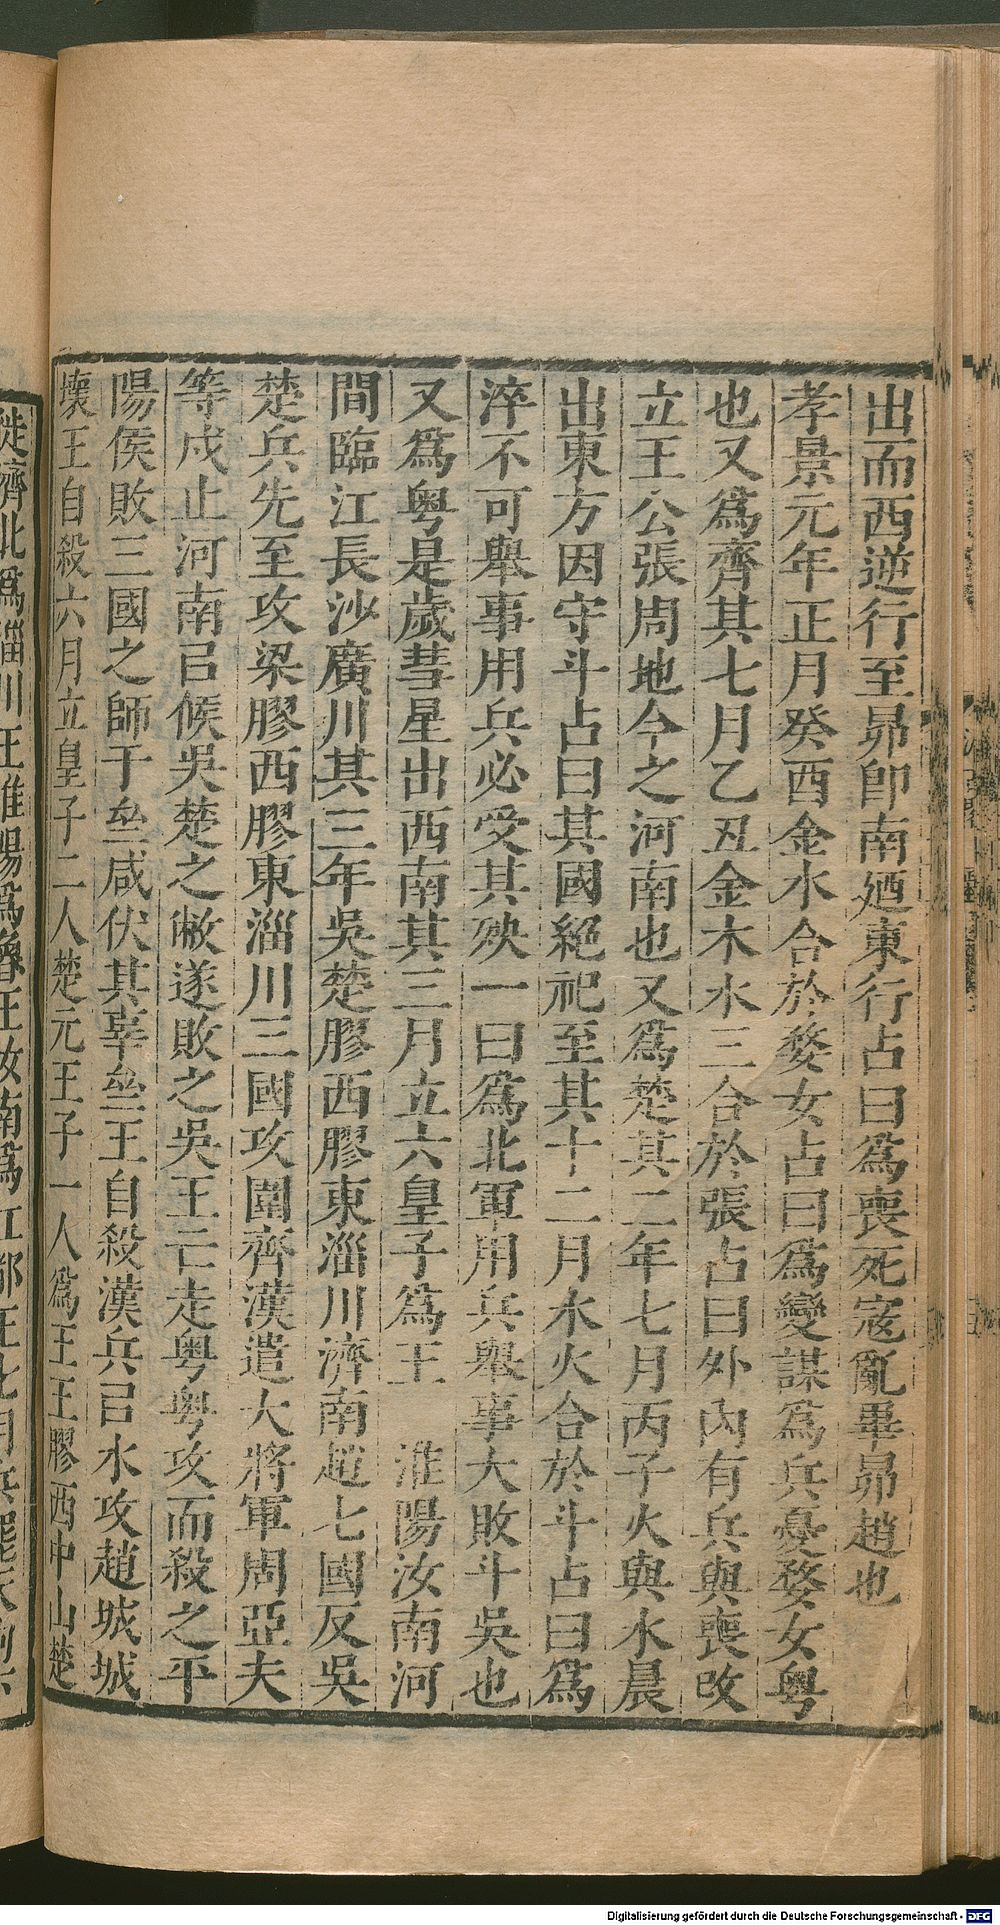 出而西逆行至昴卽南廼東行占曰爲喪死寇亂畢昴趙也
孝景元年正月癸酉金水合於婺女占曰爲變謀爲兵憂婺女粤
也又爲齊其七月乙丑金木水三合於張占曰外內有兵與喪改
立王公張周地今之河南也又爲楚其二年七月丙子火與水晨
出東方因守斗占曰其國絕祀至其十二月水火合於斗占曰爲
淬不可舉事用兵必受其殃一曰爲北軍用兵舉事大敗斗吳也
又爲粤是歲彗星出西南其三月立六皇子爲王 淮陽汝南河
間臨江長沙廣川其三年吳楚膠西膠東淄川濟南趙七國反吳
楚兵先至攻梁膠西膠東淄川三國攻圍齊漢遣大將軍周亞夫
等戍止河南㠯候吳楚之敝遂敗之吳王亡走粤粤攻而殺之平
陽侯敗三國之師于𡊣咸伏其辜𡊣王自殺漢兵㠯水攻趙城城
壞王自殺六月立皇子二人楚元王子一人爲王王膠西中山楚
徙濟北爲淄川王淮陽爲魯王汝南爲江都王七月兵罷天
Digitalisierung gefördert durch die Deutsche Forschungsgemeinschaft - DFG